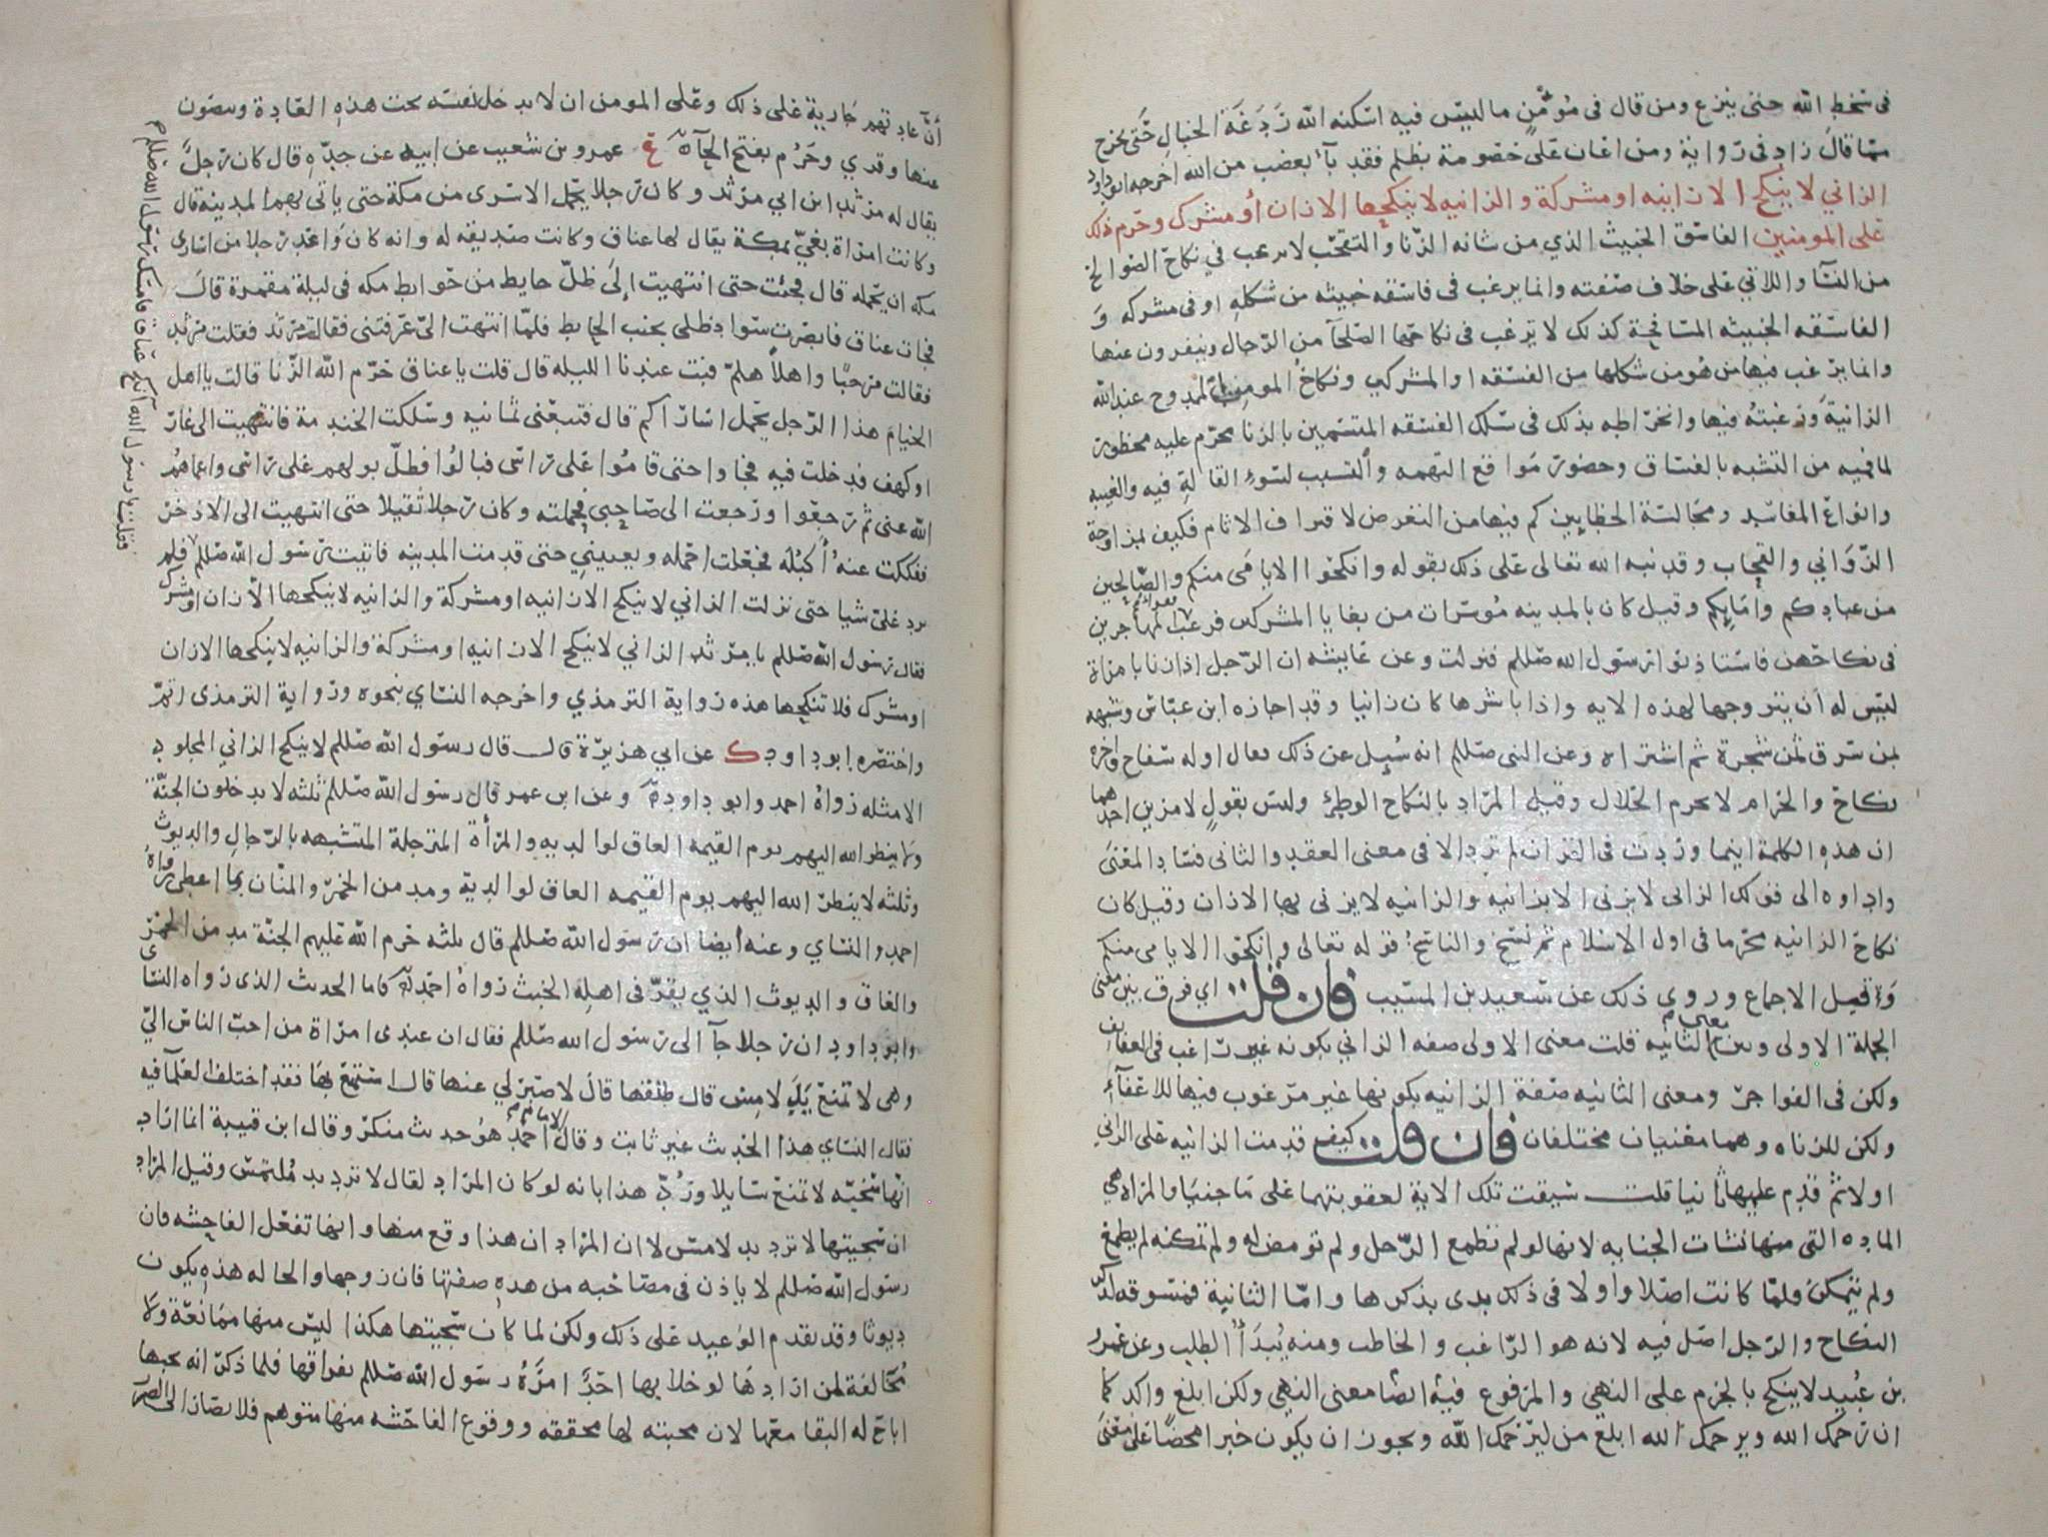 في سخط الله حتى ينزع ومن قال في مؤمن ما ليس فيه اسكنه الله ردغة الخبال حتى يخرج
مما قال زاد في رواية ومن اعان على خصومة بظلم فقد بآء بغضب من الله اخرجه ابو داود
الزاني لا ينكح الا زانيه او مشركة والزانيه لا ينكحها الا زان أو مشرك وحرم ذلك
على المومنين الفاسق الخبيث الذي من شانه الزنا والتقحب لا يرغب في نكاح الصوالح
من النسآ واللاتي على خلاف صفته وانما يرغب في فاسقه خبيثه من شكله او في مشركه و
الفاسقه الخبيثه المسافحة كذلك لا يرغب في نكاحها الصلحآ من الرجال وينفرون عنها
وانما يرغب فيها من هو من شكلها من الفسقه او المشركين ونكاح المومن الممدوح عند الله
الزانية ورغبته فيها وانخراطه بذلك في سلك الفسقه المتسمين بالزنا محرم عليه محظور
لما فيه من التشبه بالفساق وحضور مواقع التهمه والتسبب لسوء القالة فيه والغيبه
وانواع المفاسد ومجالسة الخطايين كم فيها من التعرض لاقتراف الاثام فكيف بمزاوجة
الزواني والقحاب وقد نبه الله تعالى على ذلك بقوله وانكحوا الايامى منكم والصالحين
من عبادكم وامايكم وقيل كان بالمدينه موسرات من بغايا المشركين فرغب فقرآء المهاجرين
في نكاحهن فاستاذنوا رسول الله صللم فنزلت وعن عايشه ان الرجل اذا زنا بامراة
ليس له أن يتزوجها لهذه الايه واذا باشرها كان زانيا وقد اجازه ابن عباس وشبهه
بمن سرق ثمن شجرة ثم اشتراه وعن النبي صللم انه سُيل عن ذلك فقال اوله سفاح واخره
نكاح والحرام لا يحرم الحلال وقيل المراد بالنكاح الوطئ وليس بقول لامرين احدهما
ان هذه الكلمة اينما وردت في القران لم ترد الا في معنى العقد والثاني فساد المعنى
واداوه الى قولك الزاني لا يزني الا بزانيه والزانيه لا يزني بها الا زان وقيل كان
نكاح الزانيه محرما في اول الاسلام ثم نسخ والناسخ قوله تعالى وانكحوا الايامى منكم
وقيل الاجماع وروي ذلك عن سعيد بن المسيب فان قلت اي فرق بين معنى
الجملة الاولى وبين معنى الثانيه قلت معنى الاولى صفه الزاني بكونه غير راغب في العفايف
ولكن في الفواجر ومعنى الثانيه صفة الزانيه بكونها غير مرغوب فيها للاعفآء
ولكن للزناه وهما معنيان مختلفان فان قلت كيف قدمت الزانيه على الزاني
اولا ثم قدم عليها ثانيا قلت سيقت تلك الاية لعقوبتهما على ما جنيا والمراه هي
الماده التي منها نشات الجنايه لانها لو لم تطمع الرجل ولم تومض له ولم تمكنه لم يطمع
ولم يتمكن فلما كانت اصلا واولا في ذلك بدى بذكرها واما الثانية فمسوقه لذكر
النكاح والرجل اصل فيه لانه هو الراغب والخاطب ومنه يُبدأ الطلب وعن عمرو
بن عُبيد لا ينكح بالجزم على النهي والمرفوع فيه ايضا معنى النهي ولكن ابلغ واكد كما
ان رحمك الله ويرحمك الله ابلغ من ليرحمك الله ويجوز ان يكون خبرا محضا على معنى
أنّ عادتهم جارية على ذلك وعلى المومن ان لا يدخل نفسه تحت هذه العادة ويتصون
عنها وقدي وحَرُم بفتح الحآء ع عمرو بن شعيب عن ابيه عن جده قال كان رجل
يقال له مرثد ابن ابي مرثد وكان رجلا يحمل الاسرى من مكة حتى ياتي بهم المدينه قال
وكانت امراة بغيّ بمكة يقال لها عناق وكانت صديقه له وانه كان وَاعد رجلا من اسارى
مكه ان يحمله قال فجئت حتى انتهيت إلى ظلّ حايط من حوايط مكه في ليلة مقمرة قال
فجات عناق فابصرت سواد ظلي بجنب الحايط فلما انتهت اليّ عرفتني فقالت مرثد فقلت مرثد
فقالت مرحبًا واهلاً هلمّ فبت عندنا الليله قال قلت يا عناق حرّم الله الزنا قالت يا اهل
الخيام هذا الرجل يحمل اساراكم قال فتبعني ثمانيه وسلكت الخندمة فانتهيت الى غار
او كهف فدخلت فيه فجاوا حتى قاموا على راسى فبالوُا فطلّ بولهم على راسى واعماهم
الله عنى ثم رجعوا ورجعت الى صاحبي فحملته وكان رجلا ثقيلا حتى انتهيت الى الاذخر
ففككت عنه أكبُلَه فجعلت احمله ويعييني حتى قدمت المدينه فاتيت رسول الله صللم فلم
يرد عليّ شيا حتى نزلت الزاني لا ينكح الا زانيه او مشركة والزانيه لا ينكحها الا زان او مشرك
فقال رسول الله صللم يا مرثد الزاني لا ينكح الا زانيه او مشركة والزانيه لا ينكحها الا زان
او مشرك فلا تنكحها هذه رواية الترمذي واخرجه النساي بنحوه ورواية الترمذى اتم
واختصره ابو داود ك عن ابي هريرة قال قال رسول الله صللم لا ينكح الزاني المجلود
الا مثله رواه احمد وابو داود وعن ابن عمر قال رسول الله صللم ثلثه لا يدخلون الجنّة
ولا ينظر الله اليهم يوم القيمه العاق لوالديه والمرأة المترجلة المتشبهه بالرجال والديوث
وثلثه لا ينظر الله اليهم يوم القيمه العاق لوالدية ومدمن الخمر والمنان بما اعطى رواه
احمد والنساي وعنه أيضا ان رسول الله صللم قال ثلثه حرم الله عليهم الجنّة مدمن الخمر
والعاق والديوث الذي يقرّ في اهله الخبث رواه احمد فاما الحديث الذى رواه النساى
وابو داود ان رجلا جآ الى رسول الله صللم فقال ان عندى امراة من احبّ الناس اليّ
وهى لا تمنع يَدَ لامِس قال طلقها قال لا صبر لي عنها قال استمتع بها فقد اختلف العلمآ فيه
فقال النساي هذا الحديث غير ثابت وقال الامام احمد هو حديث منكر وقال ابن قتيبة انما اراد
انها سخيه لا تمنع سايلا ورُدّ هذا بانه لو كان المراد لقال لا ترد يد مُلتمس وقيل المراد
ان سجيتها لا ترد يد لامس لا ان المراد ان هذا وقع منها وانها تفعل الفاحشه فان
رسول الله صللم لا ياذن في مصاحبه من هذه صفتها فان زوجها والحاله هذه يكون
ديوثا وقد تقدم الوعيد على ذلك ولكن لما كان سجيتها هكذا ليس منها ممانعة ولا
مُخالفة لمن ارادها لو خلا بها احَدٌ امرَهُ رسول الله صللم بفراقها فلما ذكر انه يحبها
اباح له البقا معها لان محبته لها محققه ووقوع الفاحشه منها متوهم فلا يصار الى الضرر
فقلت يا رسول الله أنكح عناق فامسك رسول الله صللم